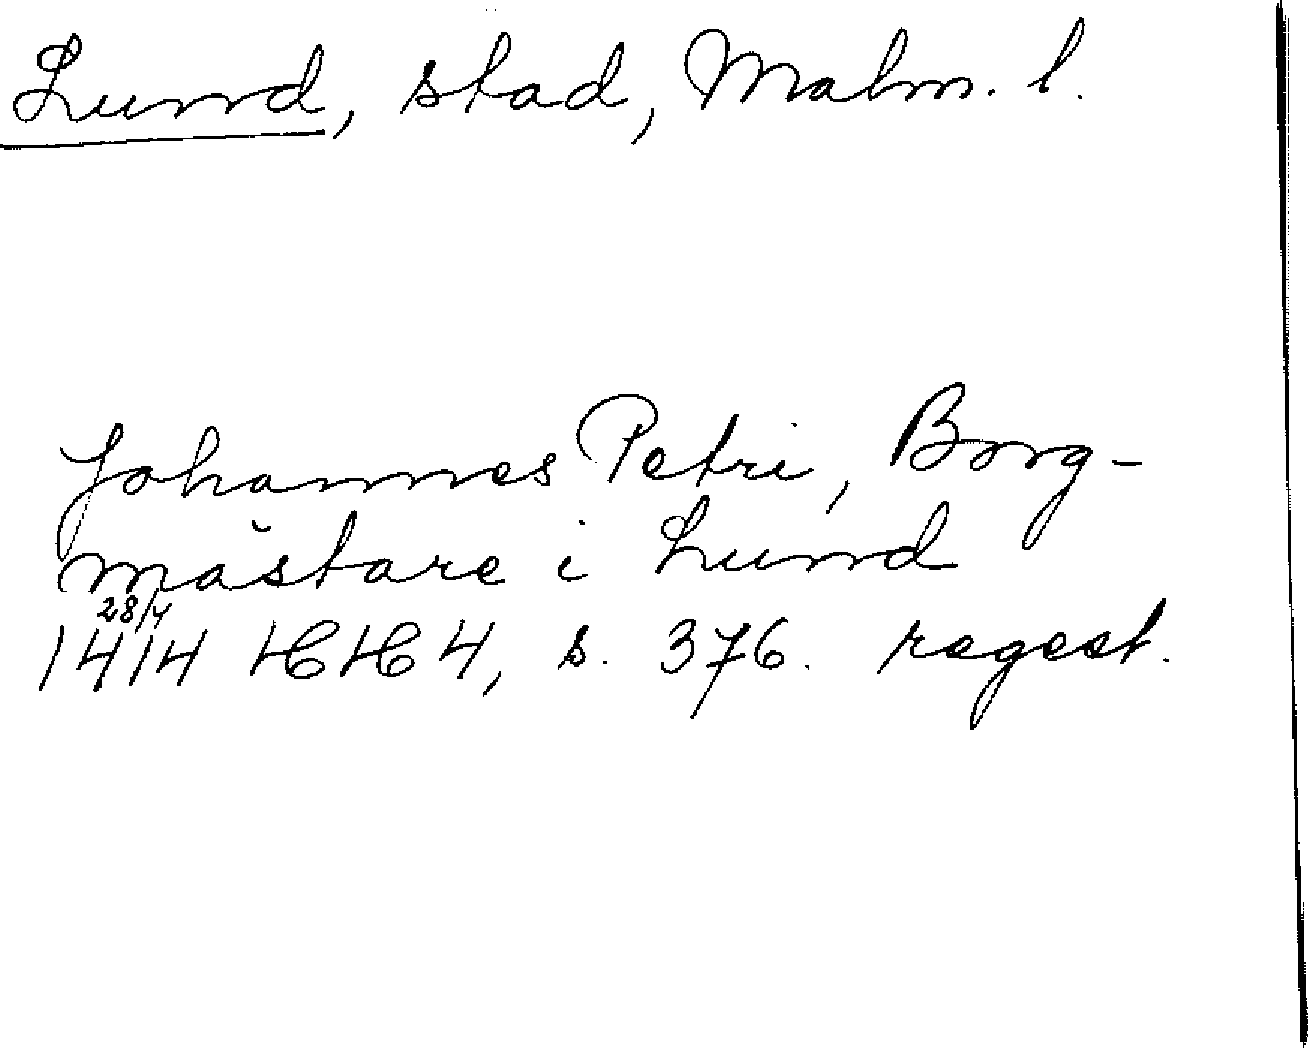 Lund, stad, Malm. l.
Johannes Petri, Borg-
mästare i Lund
28/4
1414 HH 4, s. 376. regest.